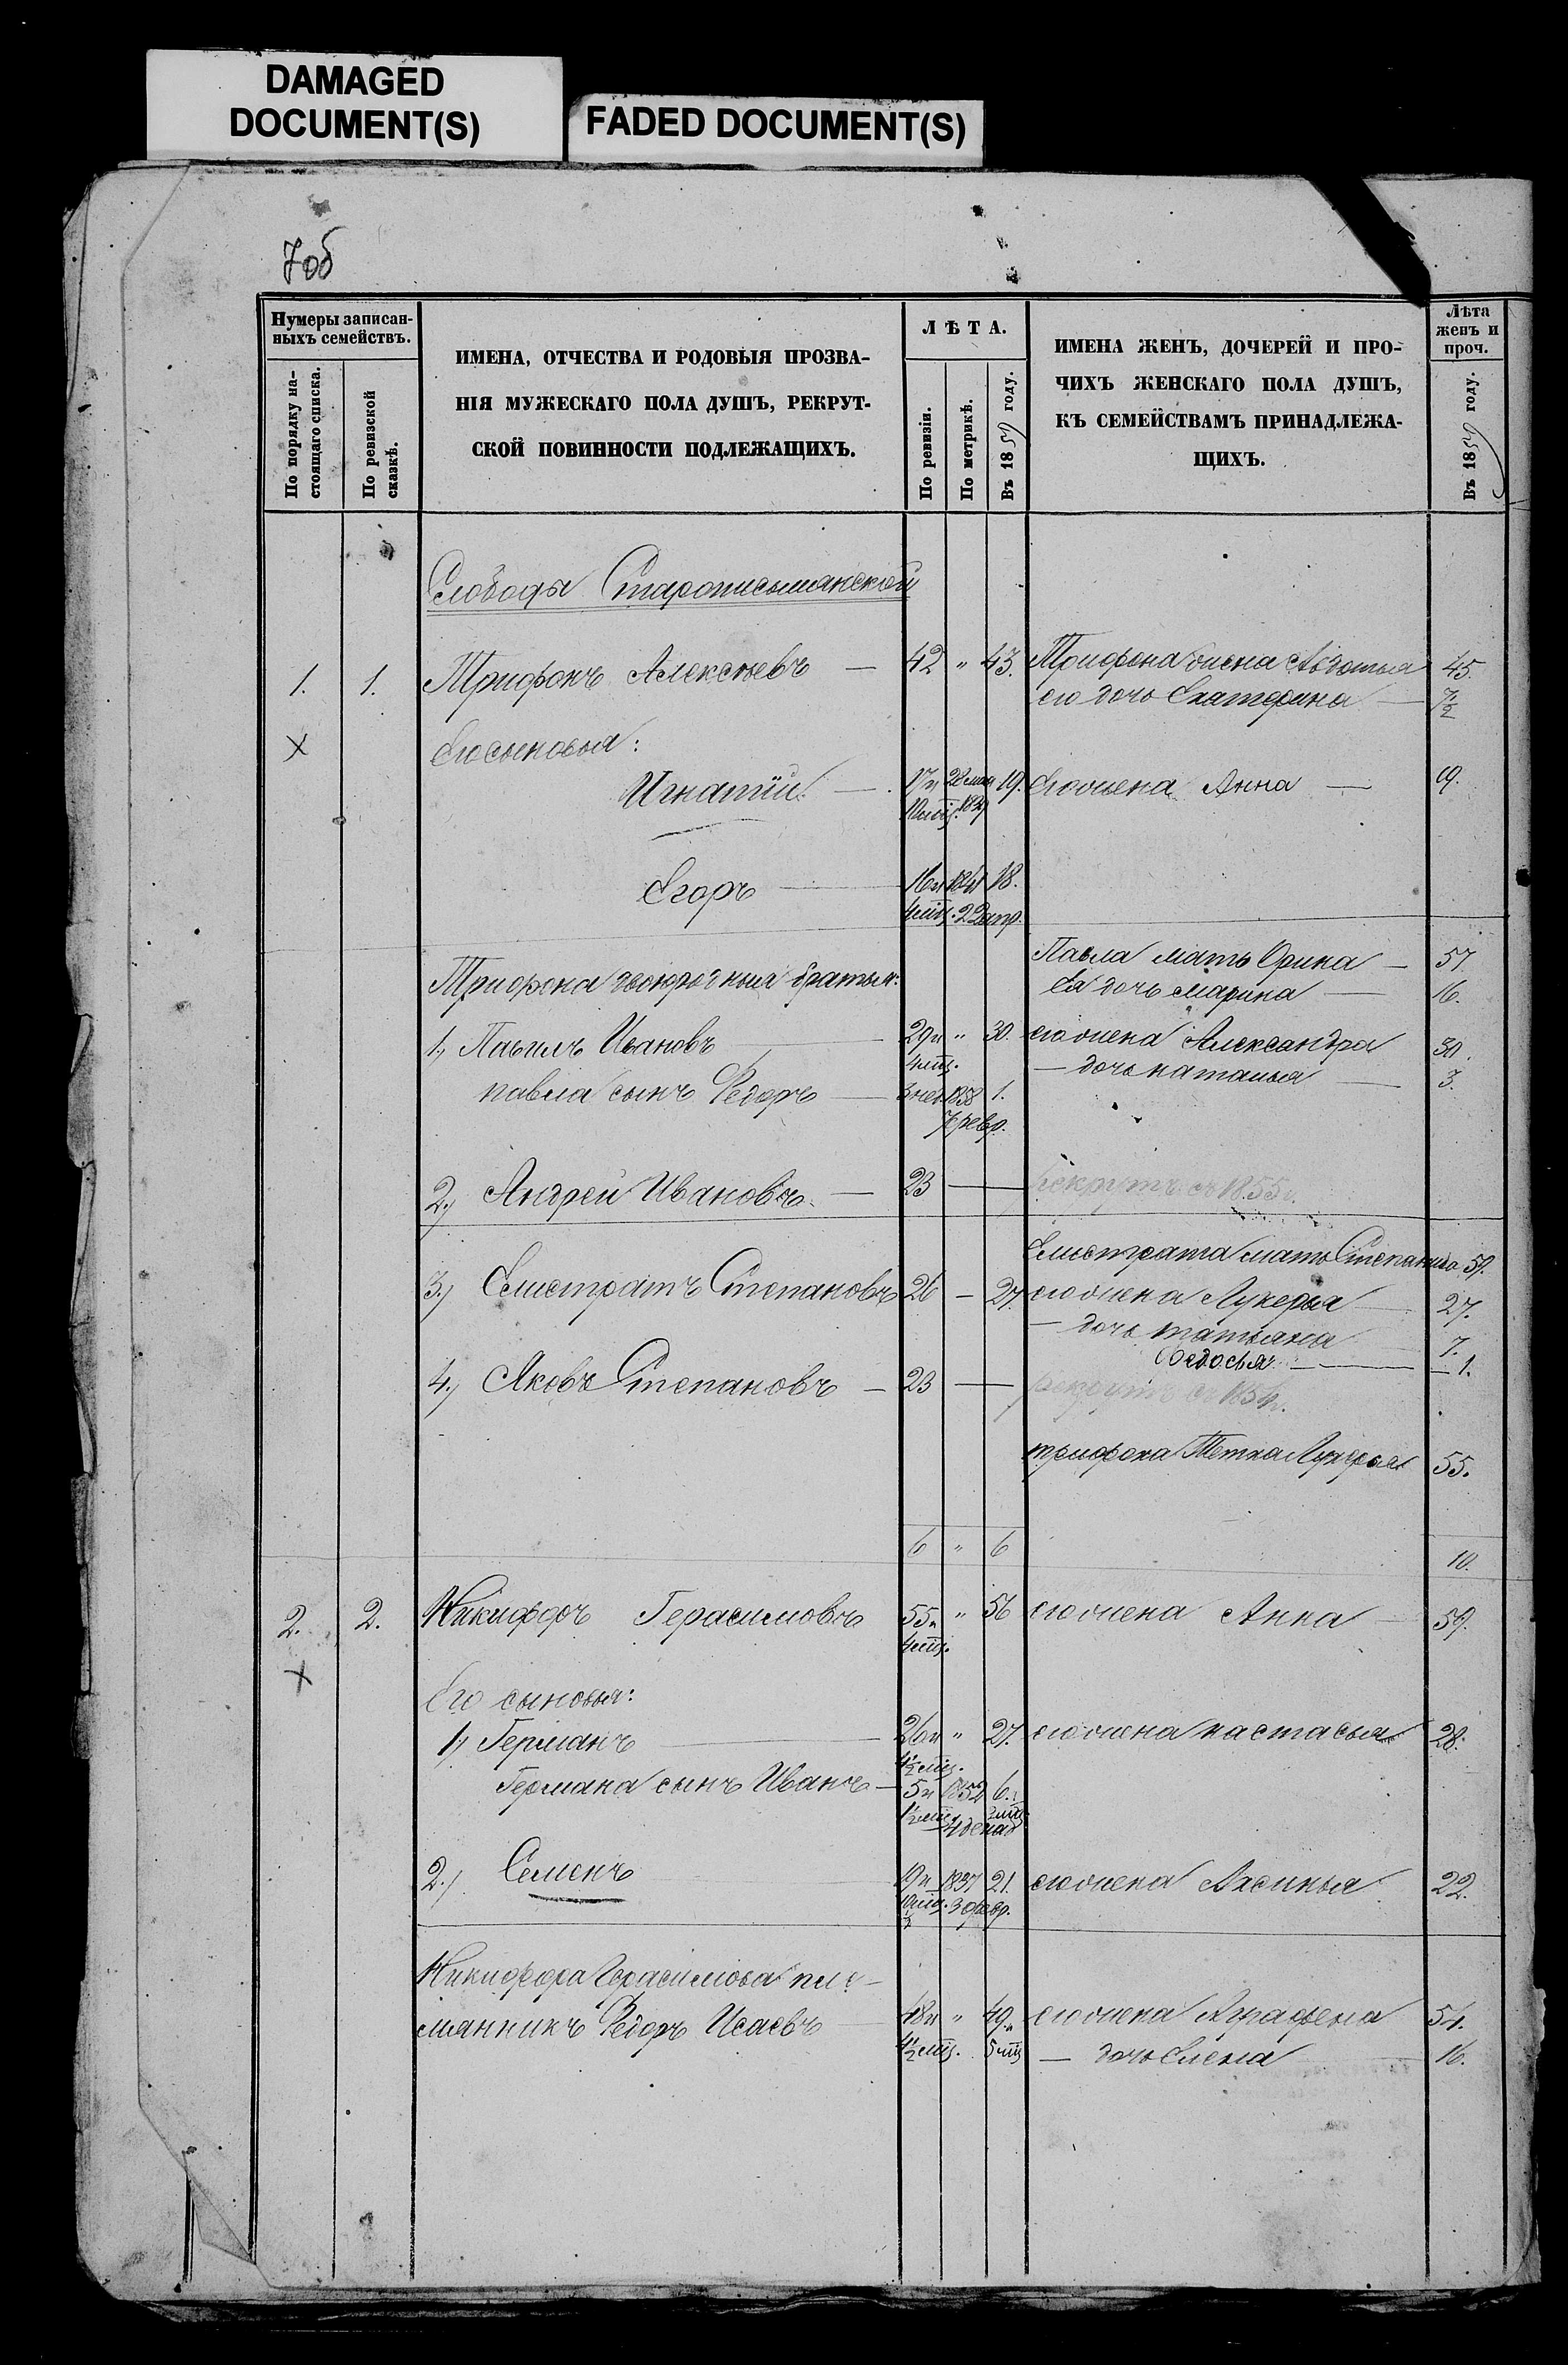 DAMAGED
DOCUMENT(S)
FADED DOCUMENT(S)
7об
Нумеры записан-
ныхъ семействъ.
По порядку на-
стоящаго списка.
По ревизской
сказкѣ.
ИМЕНА, ОТЧЕСТВА И РОДОВЫЯ ПРОЗВА-
НІЯ МУЖЕСКАГО ПОЛА ДУШЪ, РЕКРУТ-
СКОЙ ПОВИННОСТИ ПОДЛЕЖАЩИХЪ.
ЛѢТА.
По ревизіи.
По метрикѣ.
Въ 1859 году.
ИМЕНА ЖЕНЪ, ДОЧЕРЕЙ И ПРО-
ЧИХЪ ЖЕНСКАГО ПОЛА ДУШЪ,
КЪ СЕМЕЙСТВАМЪ ПРИНАДЛЕЖА-
ЩИХЪ.
Лѣта
женъ и
проч.
Въ 1859 году.
Слободы Старописьмянской
1. 1. Трифонъ Алексѣевъ — 42 " 43. Трифона жена Авдотья 45.
его дочь Екатерина — 7½
Х Его сыновья:
Игнатій — 19. Его жена Анна — 19.
Егоръ — 16 18.
4 мц. 22 апр.
Трифона двоюродныя братья:
Павла мать Орина — 57.
Ея дочь Марина — 16.
1, Павелъ Ивановъ 29 " 30. его жена Александра 30.
4 мц. — дочь Наталья 3.
Павла сынъ Федоръ — 3 нед. 1858 1.
7 февр.
2, Андрей Ивановъ — 23 — рекрутъ съ 1855 г.
Елистрата мать Степанида 59.
3, Елистратъ Степановъ 26 — 27. его жена Лукерья 27.
— дочь Татьяна 7.
Федосья — 1.
4, Яковъ Степановъ — 23 — рекрутъ съ 1854 г.
Трифона Тетка Лукерья 55.
6 " 6 10.
2. 2. Никифоръ Герасимовъ 55 " 56 его жена Анна 59.
4 мц.
Х
Его сыновья:
1, Германъ 26 " 27. его жена Настасья 28.
4½ мц.
Германа сынъ Иванъ — 5 1852 6.
1½ мц.
2, Семенъ 19 1837 21. его жена Аксинья 22.
3 февр.
Никифора Герасимова пле-
мянникъ Федоръ Исаевъ 48 " 49. его жена Аграфена 54.
4½ мц. 5 мц — дочь Елена 16.